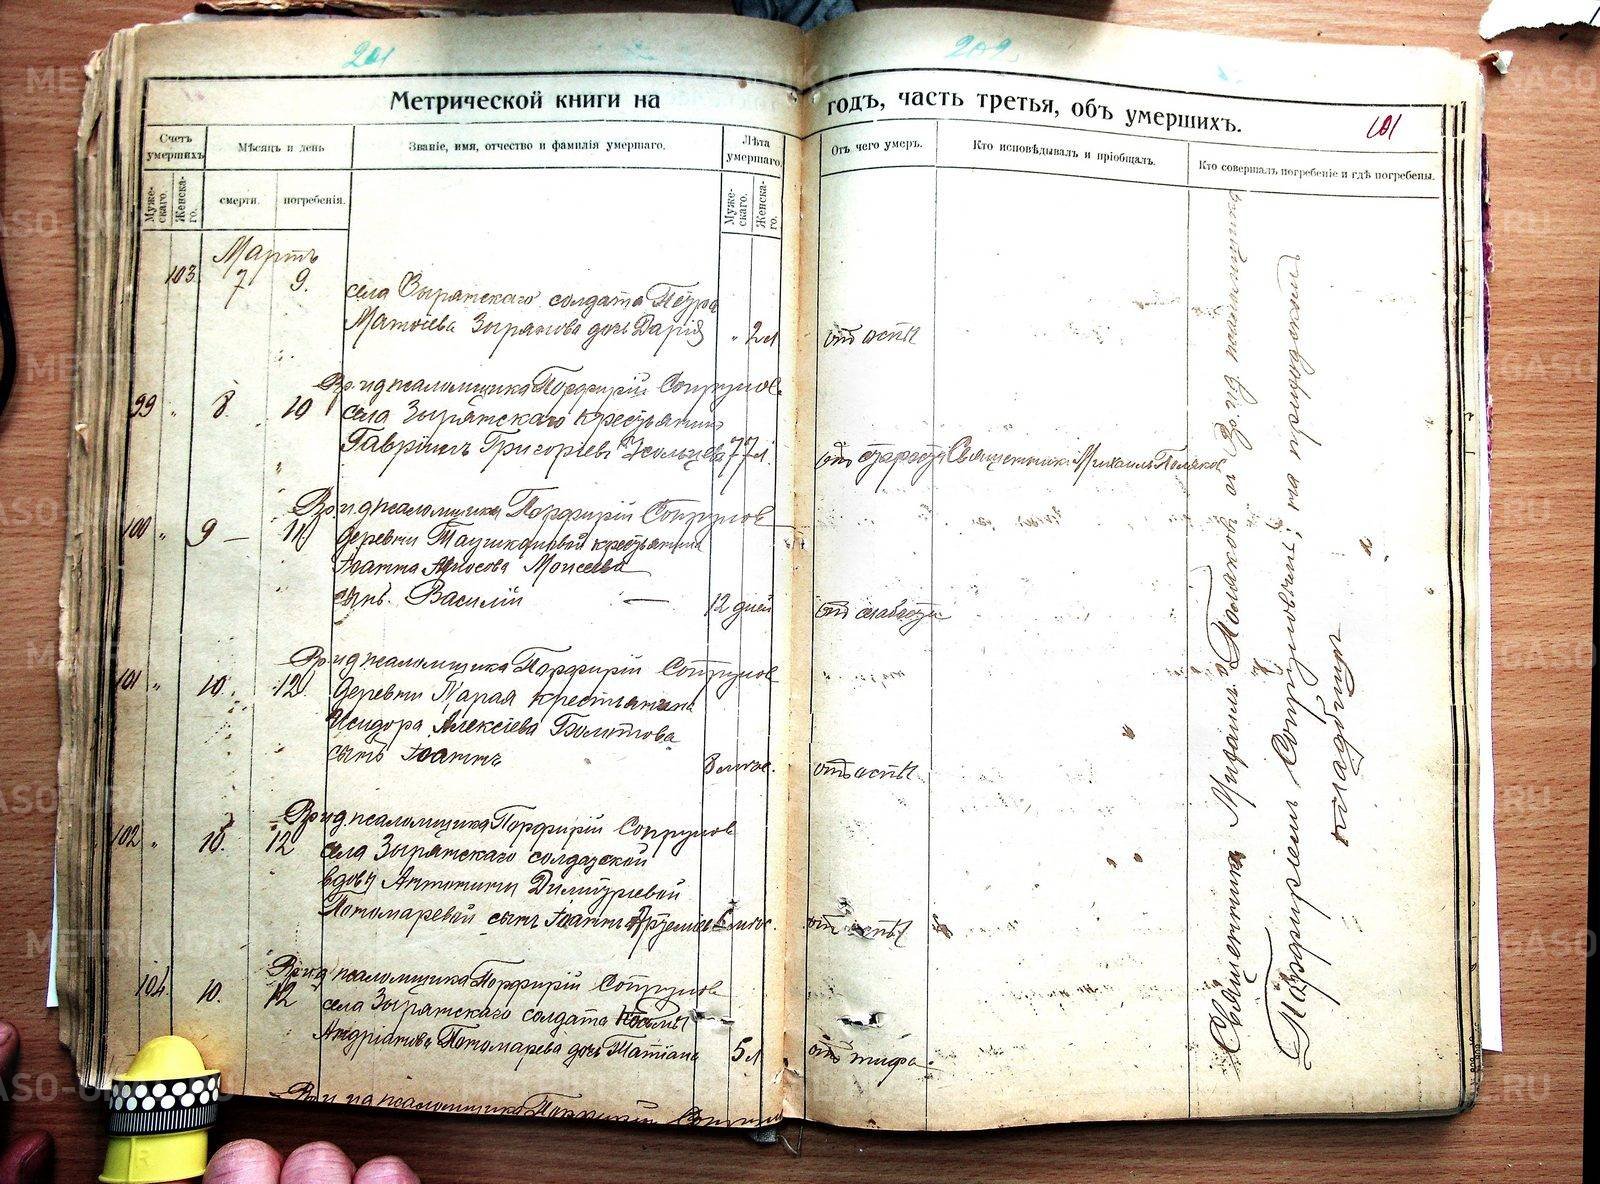 201
202
Метрической книги на
годъ, часть третья, объ умершихъ.
101
Счетъ умершихъ
Мѣсяцъ и день
Званіе, имя, отчество и фамилія умершаго.
Лѣта умершаго.
Отъ чего умеръ.
Кто исповѣдывалъ и пріобщалъ.
Кто совершалъ погребеніе и гдѣ погребены.
Муже-скаго.
Женска-го.
смерти.
погребенія.
Муже-скаго.
Женска-го.
Мартъ
103 7 9.
села Зырянскаго солдата Петра
Матѳіева Зырянова дочь Дарія " 2 л отъ оспы
Вр. и д псаломщика Порфирій Сопрунов
99 " 8. 10 села Зырянскаго крестьянинъ
Гавріилъ Григоріевъ Усольцевъ 77 л. отъ старости Священникъ Михаилъ Поляков
Вр. и д псаломщика Порфирій Сопрунов
100 " 9 — 11 деревни крестьянина
Іоанна Моисеева
сынъ Василій — 12 дней отъ слабости
Вр и д псаломщика Порфирій Сопрунов
101 " 10. 12. деревни крестьянина
Исидора Алексіева Болотова
сынъ Іоаннъ 8 мѣс. отъ оспы
Вр и д псаломщика Порфирій Сопрунов
102 " 10. 12 села Зырянскаго солдатской
вдовы Антонины Димитріевой
Пономаревой сынъ Іоаннъ мѣс. отъ оспы
Вр и д псаломщика Порфирій Сопрунов
104 10. 12 села Зырянскаго солдата Космы
Андріанова Пономарева дочь Татіана 5 л отъ тифа.
Вр и д псаломщика Порфирій Сопрунов
Священникъ Михаилъ Поляковъ съ Вр. и д псаломщика
Порфиріемъ Сопруновымъ; на приходскомъ
кладбищѣ